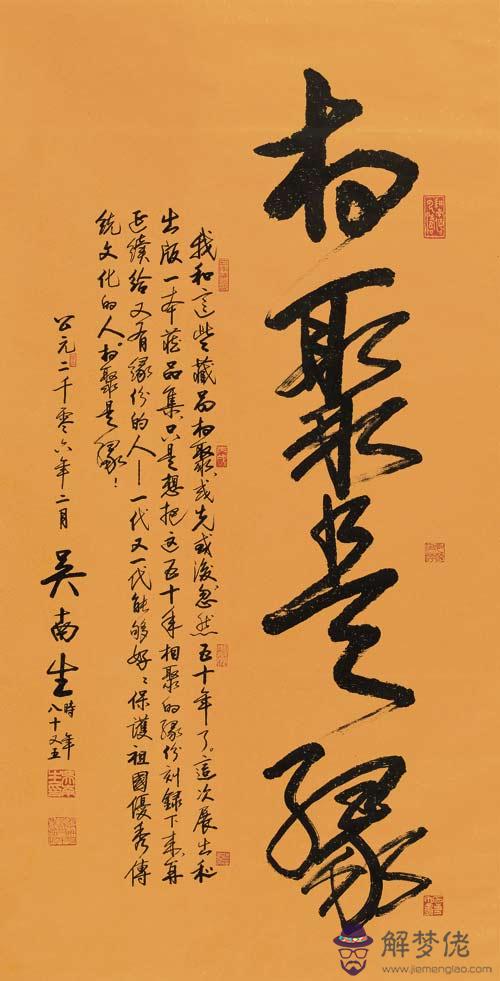 相聚是緣
我和這些藏品相聚或先或後忽然五十年了。這次展出和
出版一本藏品集只是想把这五十年相聚的緣份刻錄下来再
延續给又有緣份的人——一代又一代能够好好保護祖國優秀傳
統文化的人相聚是緣！
公元二千零六年二月
吴南生
時年
八十又五
解梦佬
www.jiemenglao.com